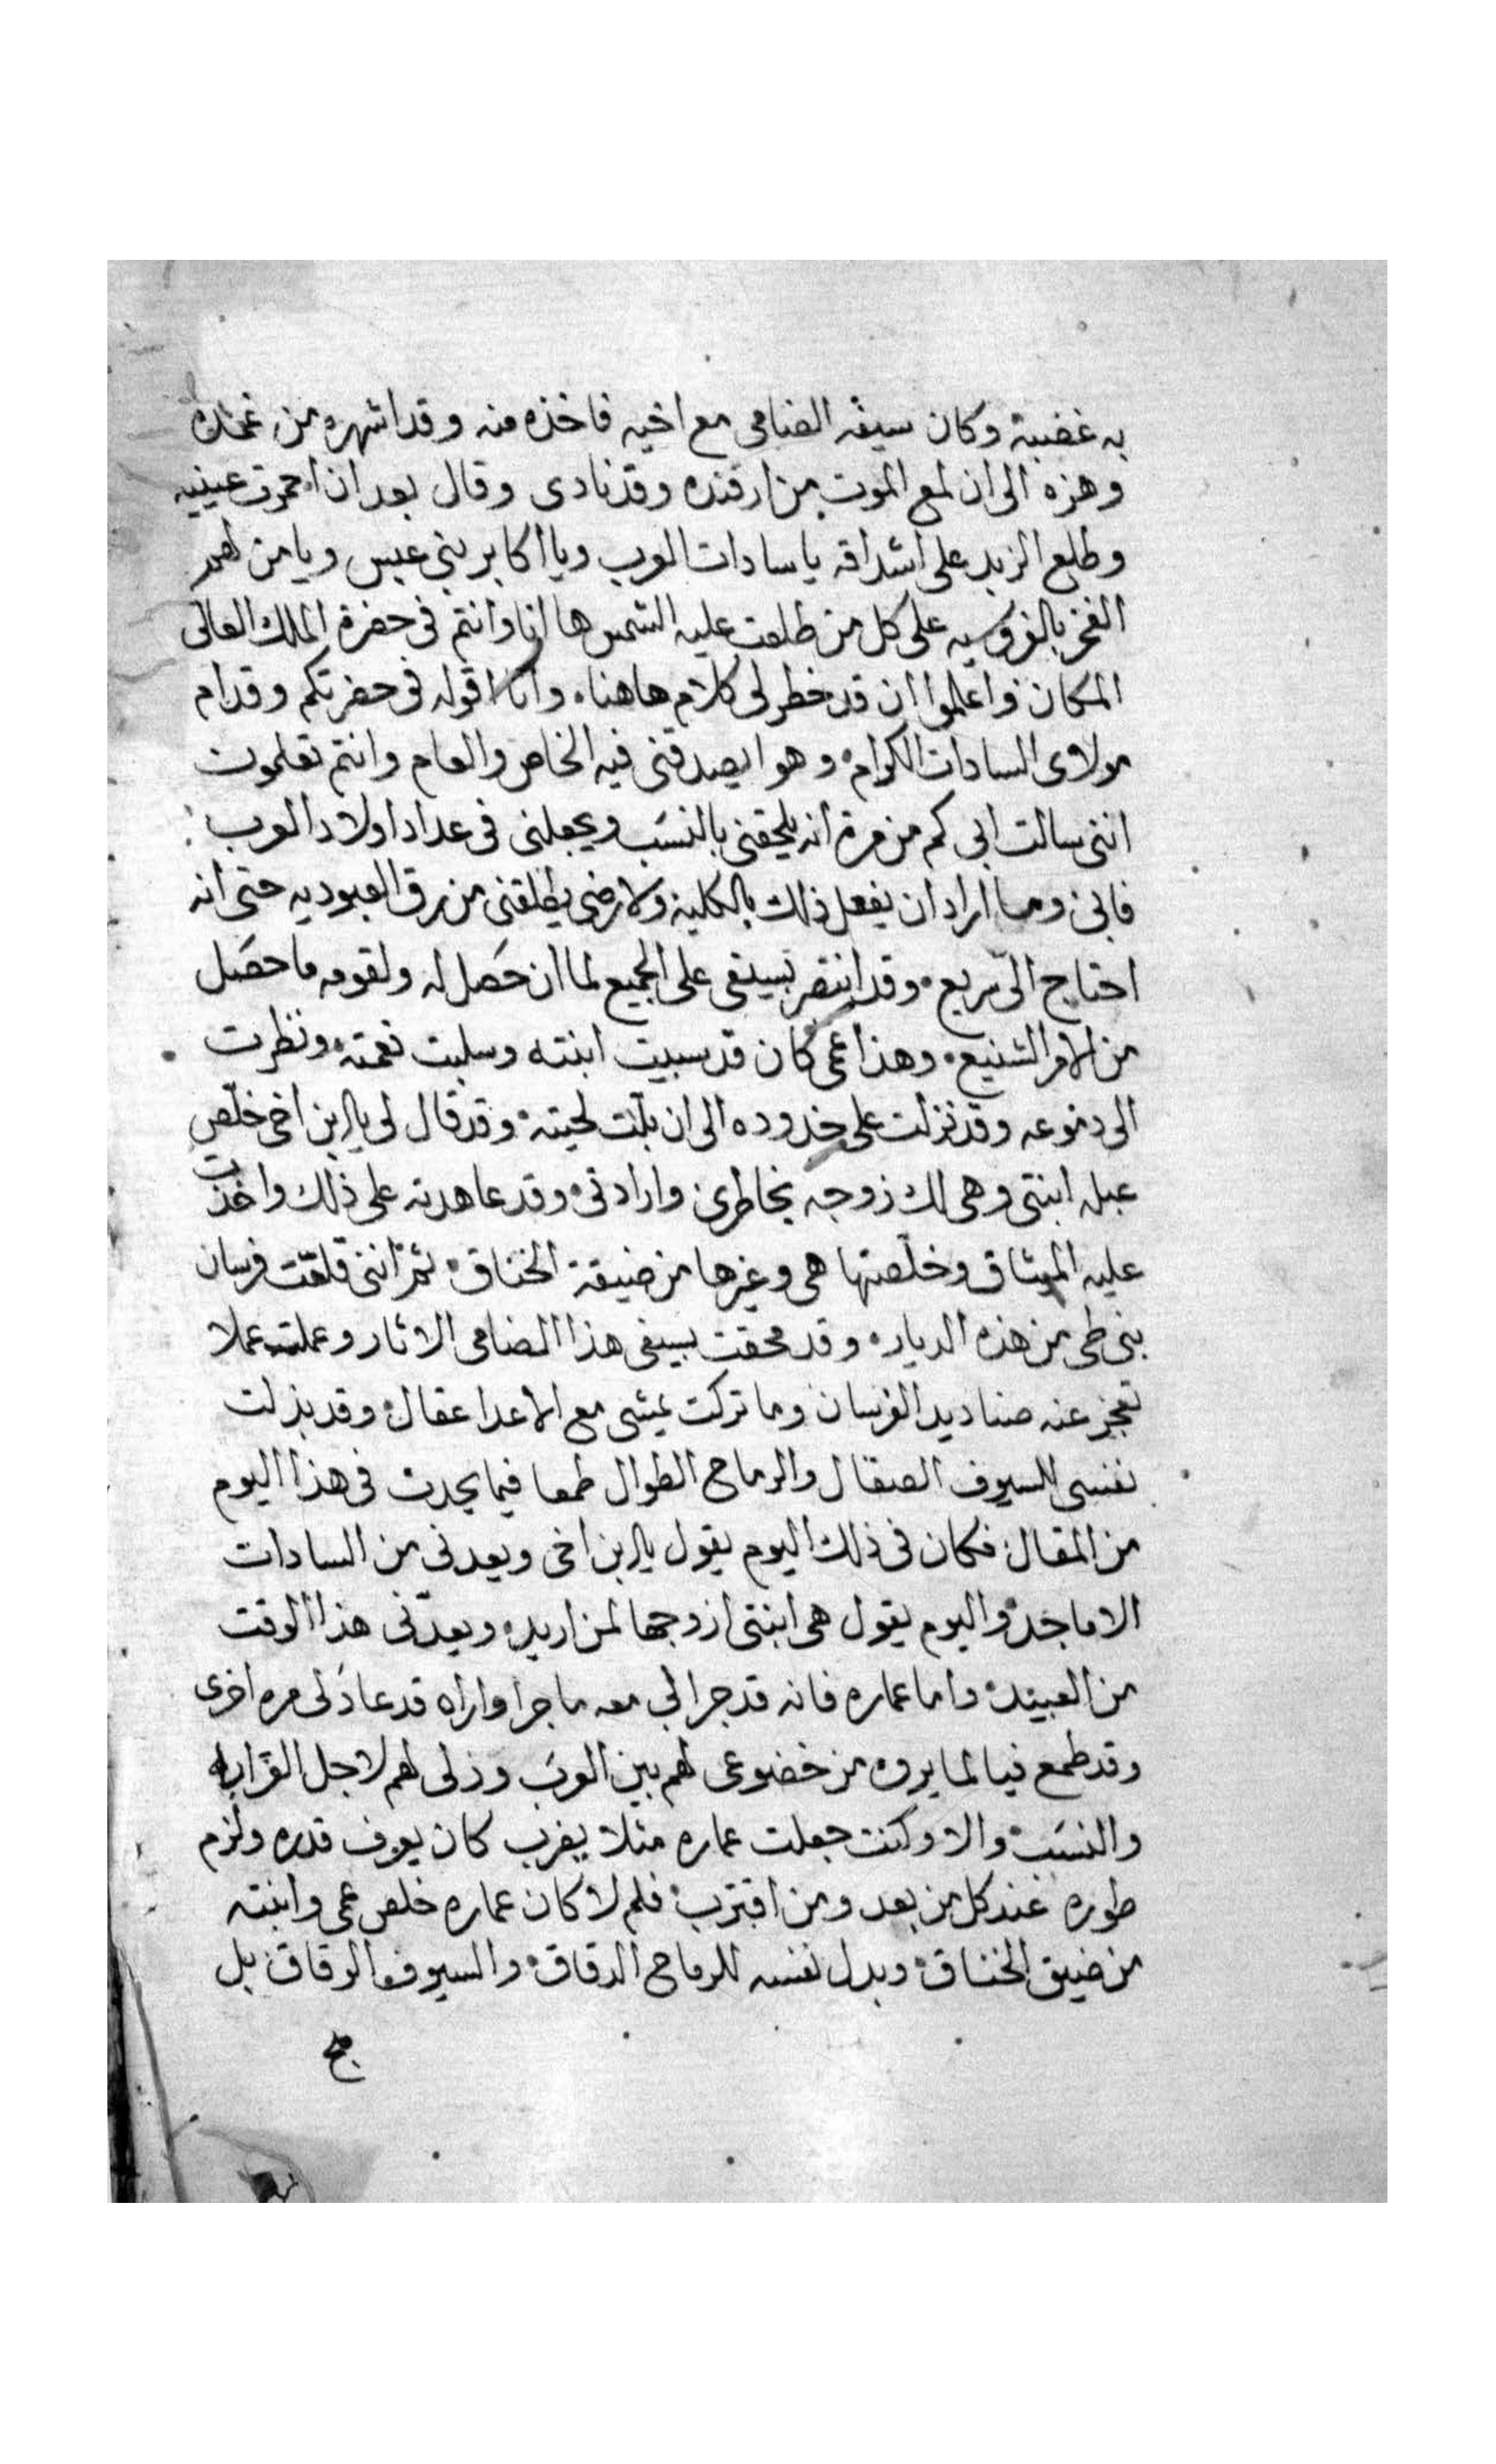 به غضبة وكان سيفه الضامى مع اخيه فاخذه منه وقد اشهره من غمده
وهزه الى ان لمع الموت من ارفنده وقد نادى وقال بعد ان احمرت عينيه
وطلع الزبد على اشداقه يا سادات العرب ويا اكابر بني عبس ويا من لهم
الفخر بالفروسيه على كل من طلعت عليه الشمس ها انا وانتم فى حضرة الملك العالى
المكان فواعلموا ان قد خطر لى كلام هاهنا، وانا اقوله فى حضرتكم وقدام
مولاى السادات الكرام، وهو ايصدقنى فيه الخاص والعام وانتم تعلمون
اننى سالت ابى كم من مرة انه يلحقنى بالنسَب ويجعلنى فى عداد اولاد العرب
فابى وما اراد ان يفعل ذلك بالكلية ولا رضى يطلقنى من رق العبوديه حتى انه
احتاج الىّ سريع، وقد انتصر بسيفى على الجميع لما ان حَصل له ولقومه ما حصَل
من الامر الشنيع، وهذا عمى كان قد سبيت ابنته وسلبت نعمته، ونظرت
الى دموعه وقد نزلت على خدوده الى ان بلّت لحيته، وقد قال لى يا ابن اخى خلّص
عبله ابنتى وهى لك زوجه بخاطرى وارادتى، وقد عاهدته على ذلك واخذت
عليه الميثاق وخلّصتها هى وغيرها من ضيقة الخناق، ثم اننى قلعّت فرسان
بنى طى من هذه الديار، وقد محقت بسيفى هذا الضامى الاثار وعملت عملا
تعجز عنه صناديد الفرسان وما تركت يمشى مع الاعدا عقال، وقد بذلت
نفسى للسيوف الصقال والرماح الطوال طمعا فيما يحدث فى هذا اليوم
من المقال، فكان فى ذلك اليوم يقول يا ابن اخى ويعدنى من السادات
الاماجد، واليوم يقول هى ابنتى ازوجها لمن اريد، ويعدّنى هذا الوقت
من العبيد، واما عماره فانه قد جرا لى معه ما جرا واراه قد عادَ لى مره اخرى
وقد طمع فيا لما يروه من خضوعى لهم بين العرَب وذلى لهم لاجل القرَابه
والنسَب، والا وكنت جعلت عماره مثلا يضرب كان يعرف قدره ولزم
طوره عند كل من بعد ومن اقترب، فلم لا كان عماره خلص عمى وابنته
من ضيق الخناق، وبدل نفسه للرماح الدقاق، والسيوف الرقاق، بل